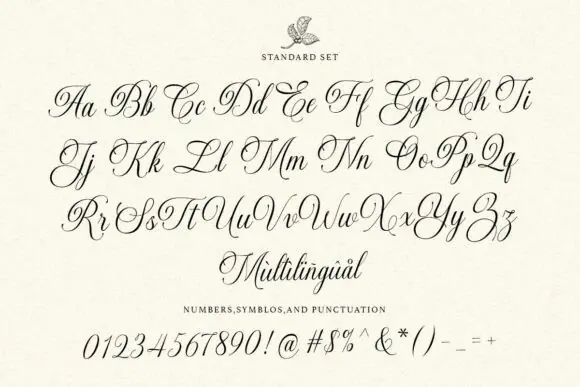 STANDARD SET
Aa Bb Cc Dd Ee Ff Gg Hh Ii
Jj Kk Ll Mm Nn Oo Pp Qq
Rr Ss Tt Uu Vv Ww Xx Yy Zz
Mùltìlïñgûål
NUMBERS,SYMBLOS,AND PUNCTUATION
0123456789 0!@#$%^&*()-_=+